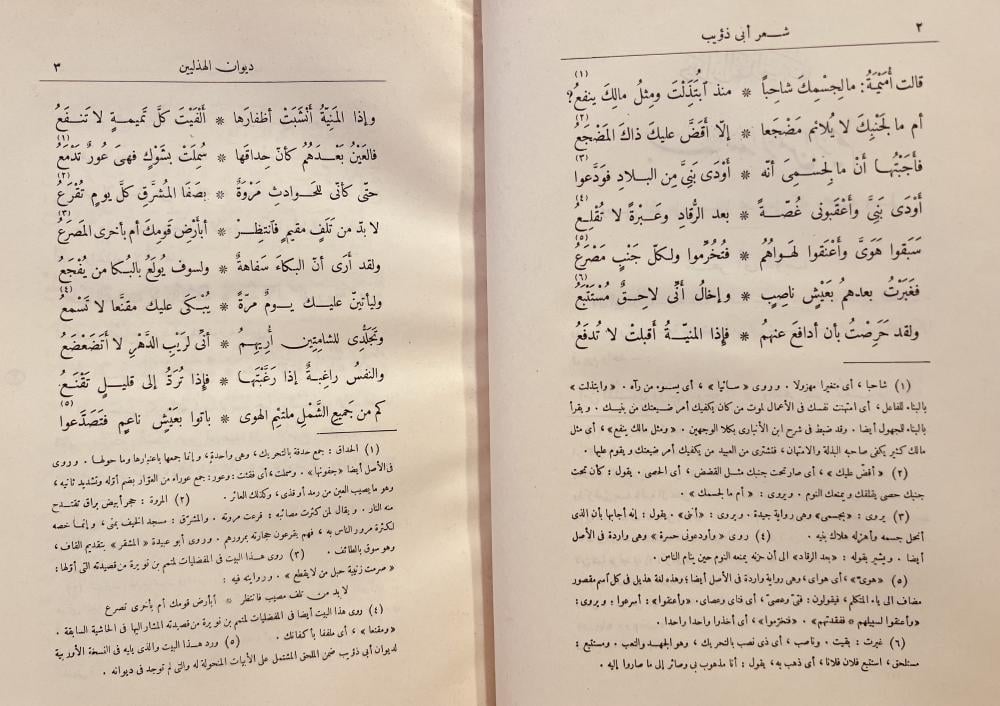 ٢
شـعر أبى ذؤيب
قالت أُمَيْمَةُ: ما لِجِسْمِكَ شاحِبًا * منذ ٱبْتَذَلْتَ ومِثلُ مالِكَ ينفعُ؟ (١)
أم ما لِجَنْبِكَ لا يُلائم مَضْجَعا * إلّا أقَضَّ عليكَ ذاكَ المَضْجَعُ (٢)
فأَجَبْتُها أنْ ما لِجِسْمِىَ أنّه * أَوْدَى بَنِىَّ مِن البـلادِ فَودَّعوا (٣)
أَوْدَى بَنِىَّ وأَعْقَبونى غُصّـةً * بعد الرُّقادِ وعَـبْرةً لا تُقْلِـعُ (٤)
سَبَقوا هَوَىَّ وأَعْنَقوا لهـواهُمُ * فَتُخُرِّموا ولكـلّ جَنْبٍ مَصْرَعُ (٥)
فغَبَرْتُ بعدهمُ بعَيْشٍ ناصِبٍ * وإخالُ أنِّى لاحِـقٌ مُسْتَتْبَعُ (٦)
ولقد حَرَصْتُ بأن أدافعَ عنهمُ * فإذا المنيّـةُ أقبلتْ لا تُدفَعُ
(١) شاحبا ، أى متغيرا مهزولا . وروى «سائيا» ، أى يسوء من رآه . «وابتذلت»
بالبناء للفاعل ، أى امتهنت نفسك فى الأعمال لموت من كان يكفيك أمر ضيعتك من بنيك . ويقرأ
بالبناء للجهول أيضا . وقد ضبط فى شرح ابن الأنبارى بكلا الوجهين . «ومثل مالك ينفع» ، أى مثل
مالك كثير يكفى صاحبه البذلة والامتهان ، فتشترى من العبيد من يكفيك أمر ضيعتك ويقوم عليها .
(٢) «أقض عليك» ، أى صار تحت جنبك مثـل القضض ، أى الحصى . يقول : كأن تحت
جنبك حصى يقلقك ويمنعك النوم . ويروى : «أم ما لجسمك» .
(٣) يروى : «بجسمى» وهى رواية جيدة . ويروى : «أننى» . يقول : إنه أجابها بأن الذى
أنحل جسمه وأهزله هلاك بنيه . (٤) روى «وأودعونى حسرة» وهى واردة فى الأصل
أيضا . ويشير بقوله : «بعد الرقاد» الى أن حزنه يمنعه النوم حين ينام الناس .
(٥) «هوىّ» ، أى هواى، وهى رواية واردة فى الأصل أيضا؛ وهذه لغة هذيل فى كل اسم مقصور
مضاف الى ياء المتكلم، فيقولون : فتىّ وعصىّ، أى فتاى وعصاى . «وأعنقوا» : أسرعوا ؛ ويروى :
«وأعنقوا لسبيلهم * ففقدتهم» . «فتخرّموا» ، أى أخذوا واحدا واحدا .
(٦) غبرت : بقيت . وناصب ، أى ذى نصب بالتحريك ، وهو الجهد والتعب . ومستتبع :
مستلحق، استتبع فلان فلانا ، أى ذهب به، يقول : أنا مذهوب بى وصائر إلى ما صاروا إليه .
ديوان الهذليين
٣
وإذا المَنِيّةُ أَنْشَبَتْ أظفارَها * أَلْفَيْتَ كلَّ تَميمـةٍ لا تَنْـفَعُ
فالعَيْنُ بَعْـدَهُمُ كأنّ حِداقَها * سُمِلَتْ بشَوْكٍ فهىَ عُورٌ تَدْمَعُ (١)
حتّى كأنّى للحَـوادثِ مَرْوَةٌ * بصَفَا المُشَرَّقِ كلَّ يومٍ تُقْرَعُ (٢)
لا بدّ من تَلَفٍ مقيمٍ فٱنتظِرْ * أبأرْضِ قومِكَ أم بأخرى المَصرَعُ (٣)
ولقد أَرَى أنّ البكاءَ سَفاهةٌ * ولسوف يُولَعُ بالبُكا من يُفْجَعُ
وليأتينّ عليـك يـومٌ مَرّةً * يُبْـكَى عليك مقنَّعا لا تَسْمَعُ (٤)
وتَجَلُّدِى للشامتِين أُرِيهِـمُ * أنِّى لَرَيْبِ الدَّهْرِ لا أَتَضَعْضَعُ
والنفسُ راغبـةٌ إذا رَغَّبْتَها * فإذا تُرَدُّ إلى قليـلٍ تَقْنَعُ
كم من جَميعِ الشَّمْلِ ملتئِم الهوى * باتوا بعَيْشٍ ناعمٍ فتَصَدَّعوا (٥)
(١) الحداق : جمع حدقة بالتحريك، وهى واحدة، وإنما جمعها باعتبارها وما حولها . وروى
فى الأصل أيضا «جفونها» . وسملت، أى فقئت : وعور: جمع عوراء من العوّار بضم أوّله وتشديد ثانيه ،
وهو ما يصيب العين من رمد أو قذى ، وكذلك العائر . (٢) المروة : حجر أبيض براق تقتـدح
منه النار . و يقال لمن كثرت مصائبه : قرعت مروته . والمشرّق : مسجد الخيف بمنى، وإنمـا خصه
لكثرة مرور الناس به ، فهم يقرعون حجارته بمرورهم . وروى أبو عبيدة «المشقر» بتقديم القاف،
وهو سوق بالطائف . (٣) روى هذا البيت فى المفضليات لمتمم بن نويرة من قصيدته التى أوّلها :
«صرمت زنيبة حبل من لا يقطع» . وروايته فيه :
لا بد من تلف مصيب فانتظر * أبأرض قومك أم بأخرى تصرع
(٤) روى هذا البيت أيضا فى المفضليات لمتمم بن نويرة من قصيدته المشار إليها فى الحاشية السابقة .
«ومقنعا» ، أى ملففا بأكفانك . (٥) ورد هـذا البيت والذى يليه فى النسخة الأوربية
لديوان أبى ذؤيب ضمن الملحق المشتمل على الأبيات المنحولة له والتى لم توجد فى ديوانه .